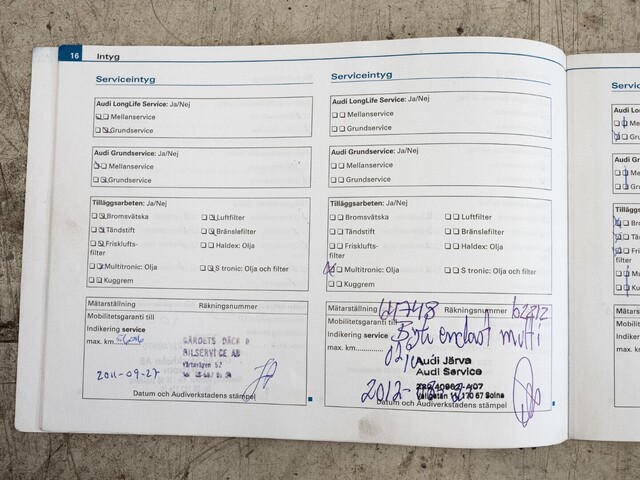 16 Intyg
Serviceintyg
Audi LongLife Service: Ja/Nej
Mellanservice
Grundservice
Audi Grundservice: Ja/Nej
Mellanservice
Grundservice
Tilläggsarbeten: Ja/Nej
Bromsvätska
Luftfilter
Tändstift
Bränslefilter
Friskluftsfilter
Haldex: Olja
Multitronic: Olja
S tronic: Olja och filter
Kuggrem
Mätarställning
Räkningsnummer
Mobilitetsgaranti till
Indikering service
max. km
GÄRDETS DÄCK &
BILSERVICE AB
2011-09-27
Datum och Audiverkstadens stämpel
Serviceintyg
Audi LongLife Service: Ja/Nej
Mellanservice
Grundservice
Audi Grundservice: Ja/Nej
Mellanservice
Grundservice
Tilläggsarbeten: Ja/Nej
Bromsvätska
Luftfilter
Tändstift
Bränslefilter
Friskluftsfilter
Haldex: Olja
Multitronic: Olja
S tronic: Olja och filter
Kuggrem
Mätarställning
Räkningsnummer
Mobilitetsgaranti till
Indikering service
endast multi
max. km
Audi Järva
Audi Service
Solna
Datum och Audiverkstadens stämpel